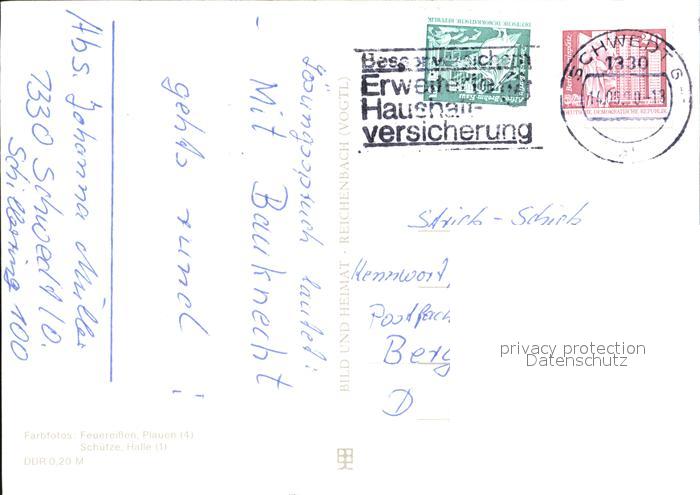 Abs. Johanna Müller
1330 Schwedt/O.
Schillerring 100
Lösungsspruch lautet:
- Mit Bauknecht
gehts rund!
BILD UND HEIMAT · REICHENBACH (VOGTL)
DEUTSCHE DEMOKRATISCHE REPUBLIK
Besser versichern
Erweiterte
Haushalt-
versicherung
SCHWEDT
1330
DEUTSCHE DEMOKRATISCHE REPUBLIK
Strich - Schieb
Kennwort
Postfach
Berg
D
privacy protection
Datenschutz
Farbfotos: Feuereißen, Plauen (4)
Schütze, Halle (1)
DDR 0,20 M